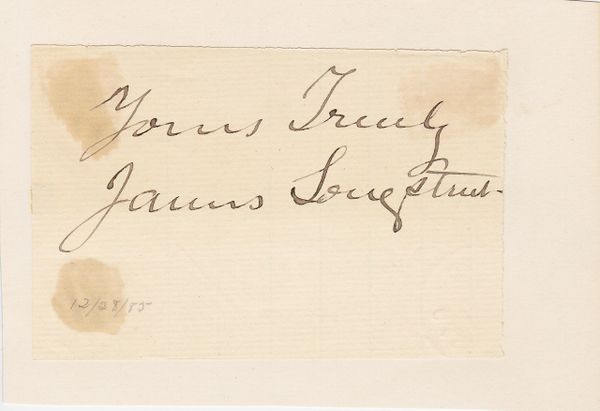 Yours Truly
James Longstreet
12/28/85